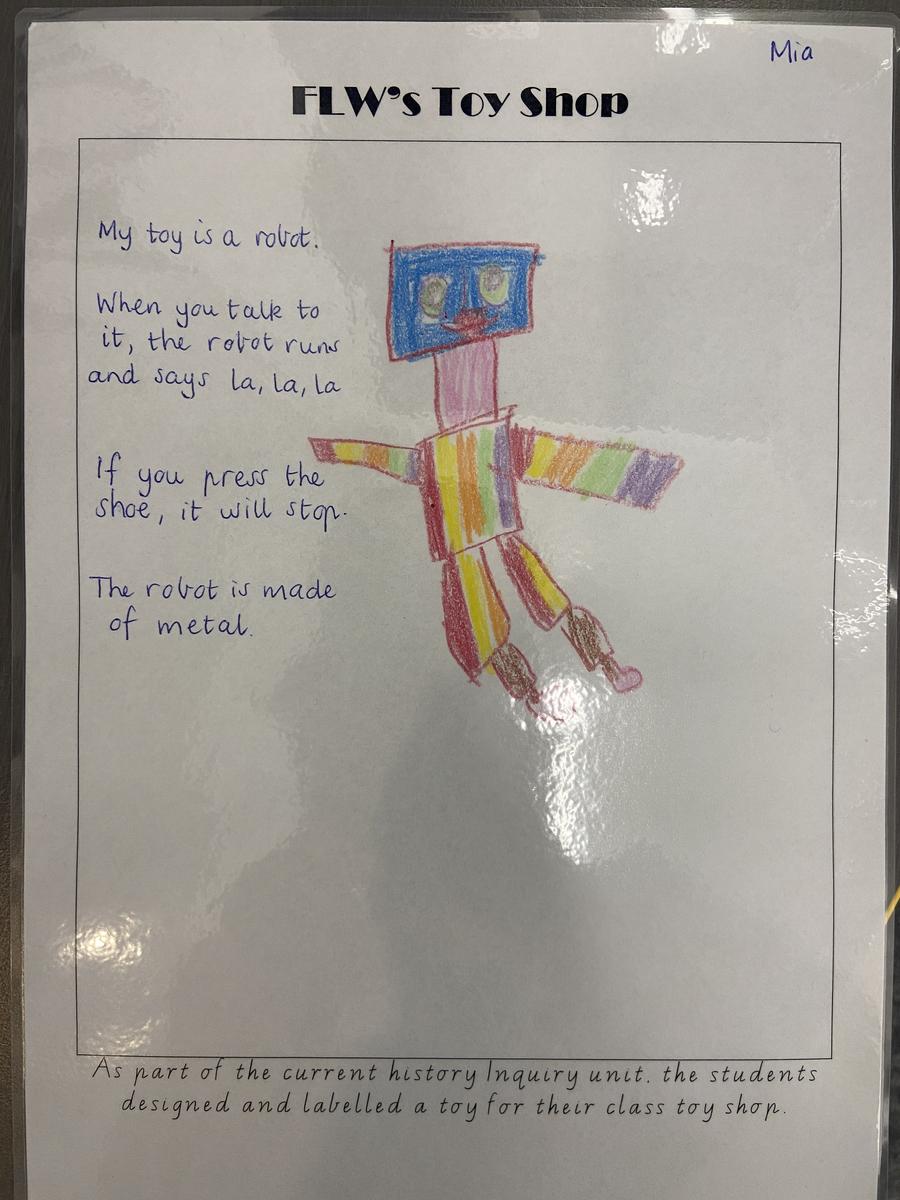 Mia
FLW's Toy Shop
My toy is a robot.
When you talk to
it, the robot runs
and says la, la, la
If you press the
shoe, it will stop.
The robot is made
of metal.
As part of the current history Inquiry unit. the students
designed and labelled a toy for their class toy shop.